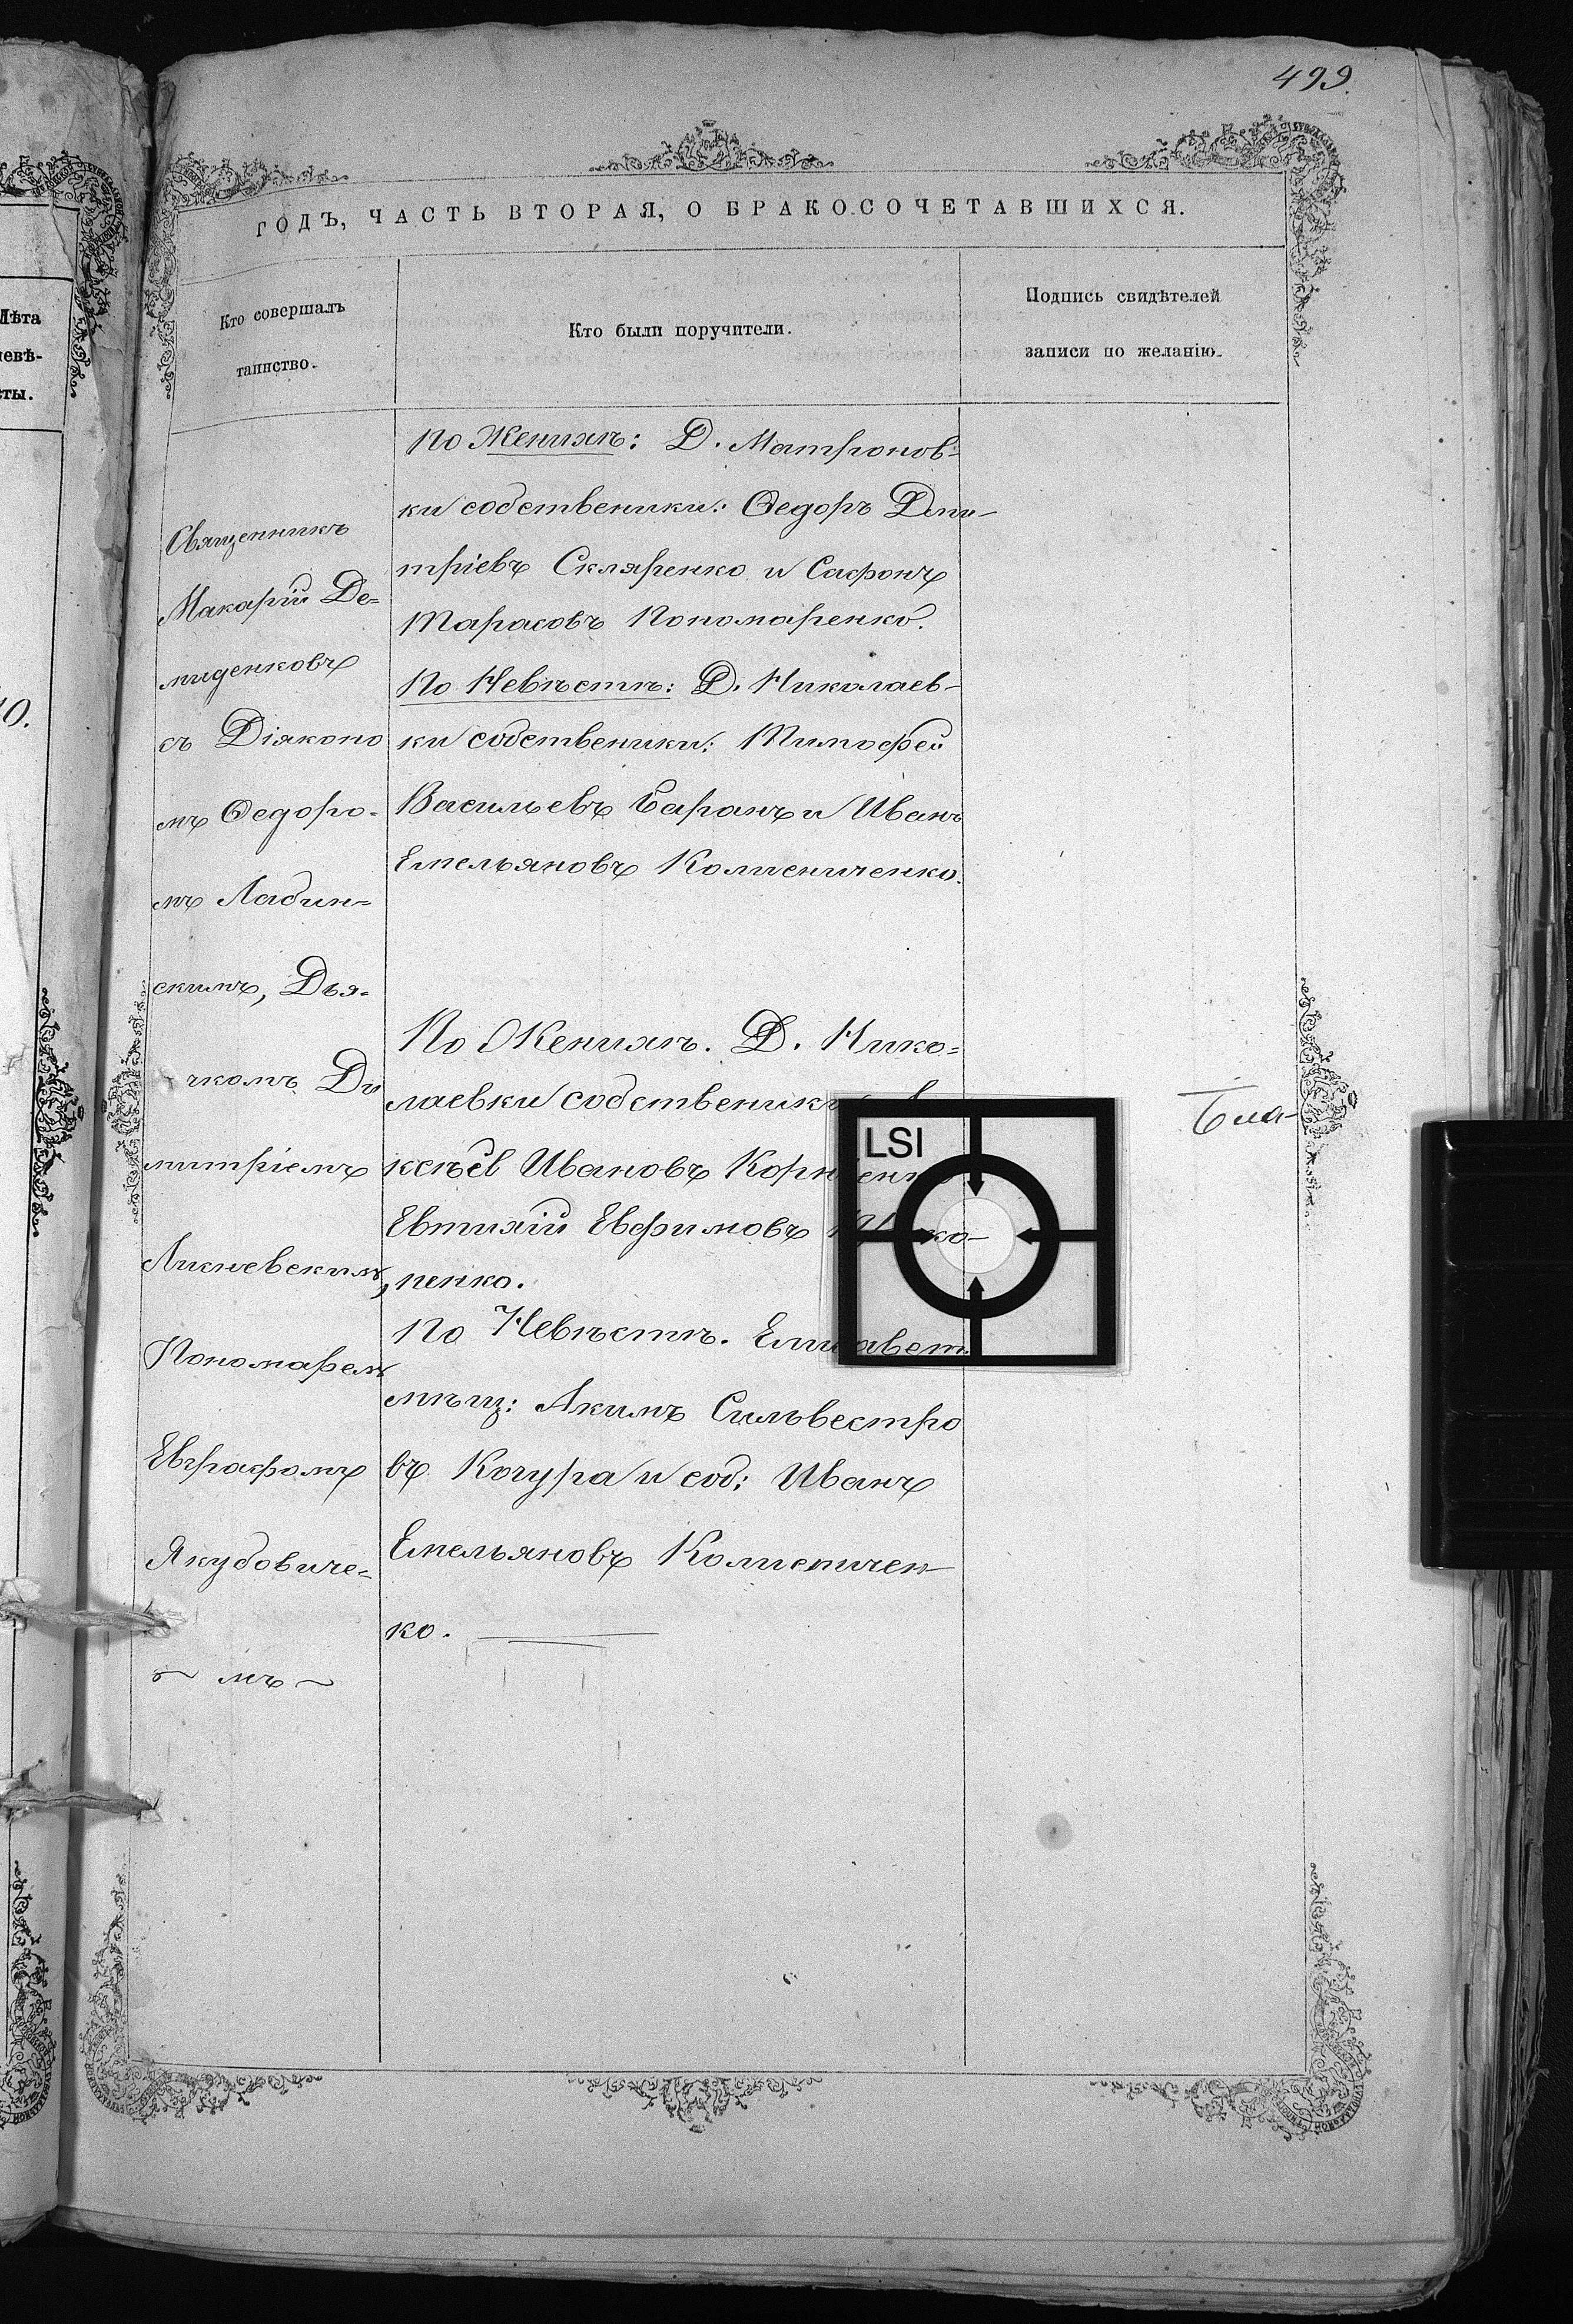 499.
ГОДЪ, ЧАСТЬ ВТОРАЯ, О БРАКОСОЧЕТАВШИХСЯ.
Лѣта
невѣ-
сты.
Кто совершалъ
таинство.
Кто были поручители.
Подпись свидѣтелей
записи по желанію.
Священникъ
Макарій Де=
миденковъ
съ Діяконо
мъ Ѳедоро-
мъ Лабин=
скимъ, Дья-
чкомъ Ди
митріемъ
Лисневскимъ,
Пономаремъ
Евграфомъ
Якубовиче-
мъ
По Женихѣ: Д. Матронов-
ки собственики: Ѳедоръ Дми-
тріевъ Скляренко и Сафонъ
Тарасовъ Пономаренко.
По Невѣстѣ: Д. Николаев-
ки собственики: Тимофей
Васильевъ Баранъ и Иванъ
Емельяновъ Колисниченко.
По Женихѣ. Д. Нико=
лаевки собственик
ксѣй Ивановъ
Евтихій Евфимовъ
ко-
пенко.
По Невѣстѣ. Елисавет.
мѣщ: Акимъ Сильвестро
въ Когура и соб: Иванъ
Емельяновъ Колисничен-
ко.
Бла-
LSI
10.